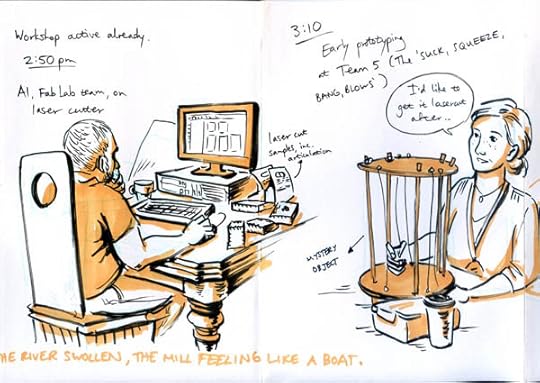 Workshop active already.
2:50 pm
Al, Fab Lab team, on
laser cutter
laser cut
samples, inc.
articulation
3:10
Early prototyping
at Team 5 (The 'SUCK, SQUEEZE,
BANG, BLOWS')
I'd like to
get it lasercut
after..
MYSTERY
OBJECT
THE RIVER SWOLLEN, THE MILL FEELING LIKE A BOAT.